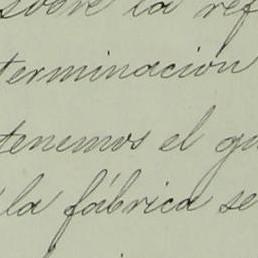 sobre la ref
terminacion
tenemos el gu
la fábrica se